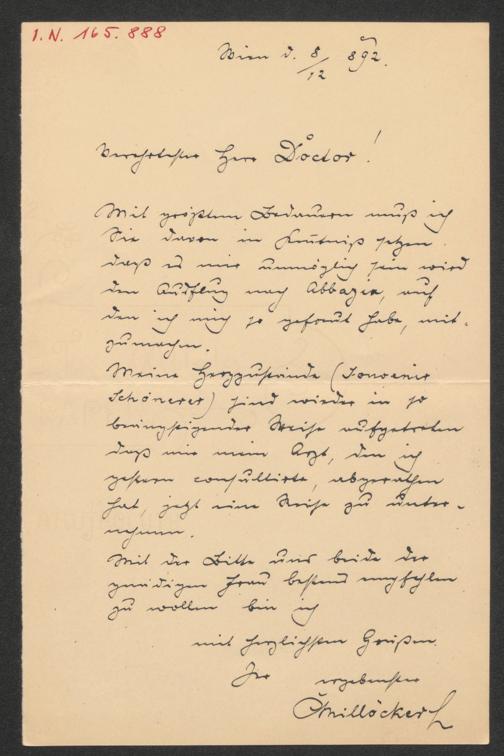 I.N. 165.888
Wien d. 8/12 892.
Verehrtester Herr Doctor!
Mit größtem Bedauern muß ich
Sie davon in Kentniß setzen
daß es mir unmöglich sein wird
den Ausflug nach Abbazia, auf
den ich mich so gefreut habe, mit-
zumachen.
Meine Herzzustände (
Schönerer) sind wieder in so
beängstigender Weise aufgetreten
daß mir mein Arzt, den ich
gestern consultirte, abgerathen
hat jetzt eine Reise zu unter-
nehmen.
Mit der Bitte uns beide der
gnädigen Frau bestens empfehlen
zu wollen bin ich
mit herzlichsten Grüßen
Ihr ergebenster
CMillöcker